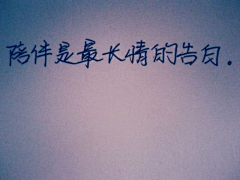 陪伴是最长情的告白。